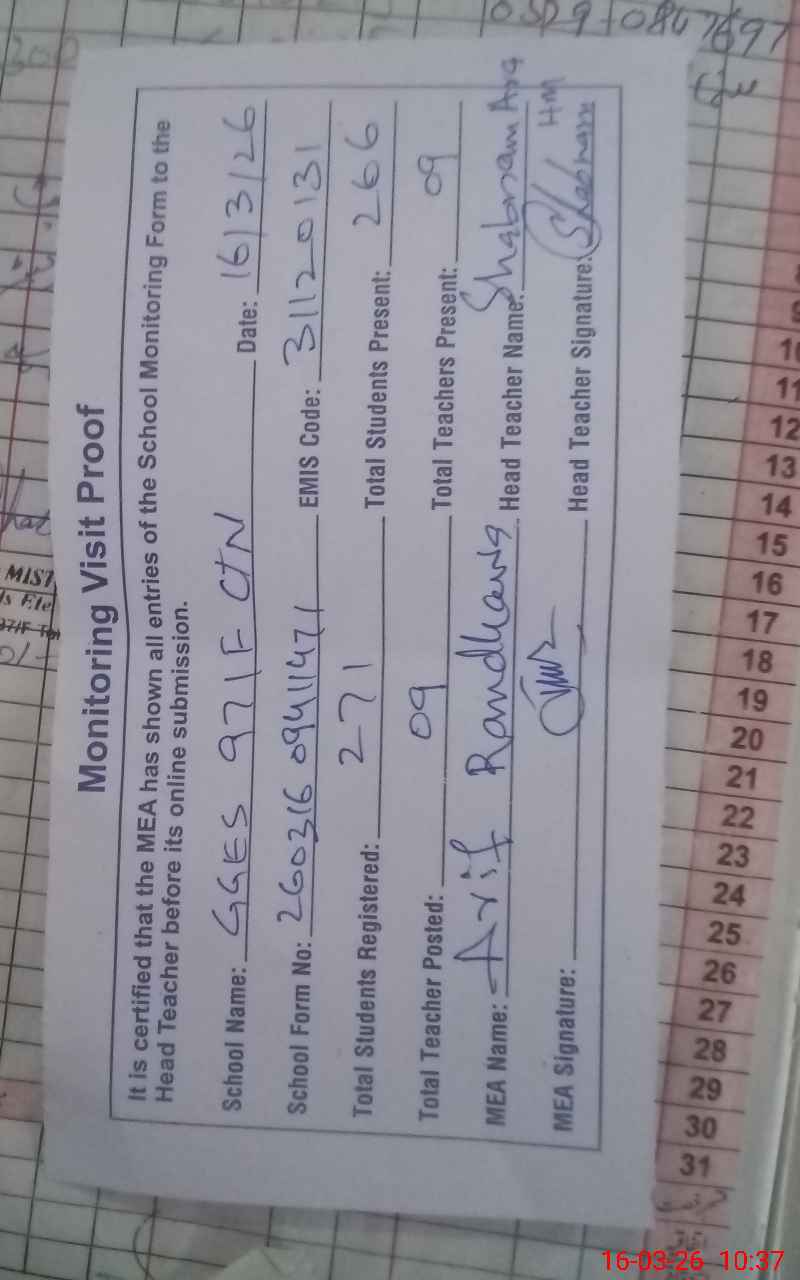 Monitoring Visit Proof
It is certified that the MEA has shown all entries of the School Monitoring Form to the
Head Teacher before its online submission.
School Name: GGES 971F CTN Date: 16/3/26
School Form No: 260316 09411471 EMIS Code: 31120131
Total Students Registered: 271 Total Students Present: 266
Total Teacher Posted: 09 Total Teachers Present: 09
MEA Name: Arif Randhawa Head Teacher Name: Shabnam Ara
HM
MEA Signature: Head Teacher Signature: Shabnam
MIST
10
11
12
13
14
15
16
17
18
19
20
21
22
23
24
25
26
27
28
29
30
31
16-03-26 10:37